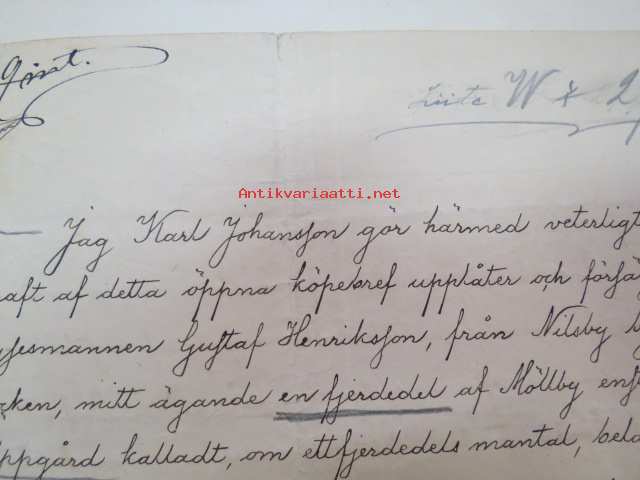 Liite W * 2
Antikvariaatti.net
Jag Karl Johansson gör härmed veterligt
aft af detta öppna köpebref upplåter och försä
Gustaf Henriksson, från Nilsby b
ken, mitt ägande en fjerdedel af Möllby ens
ppgård kalladt, om ettfjerdedels mantal, bela